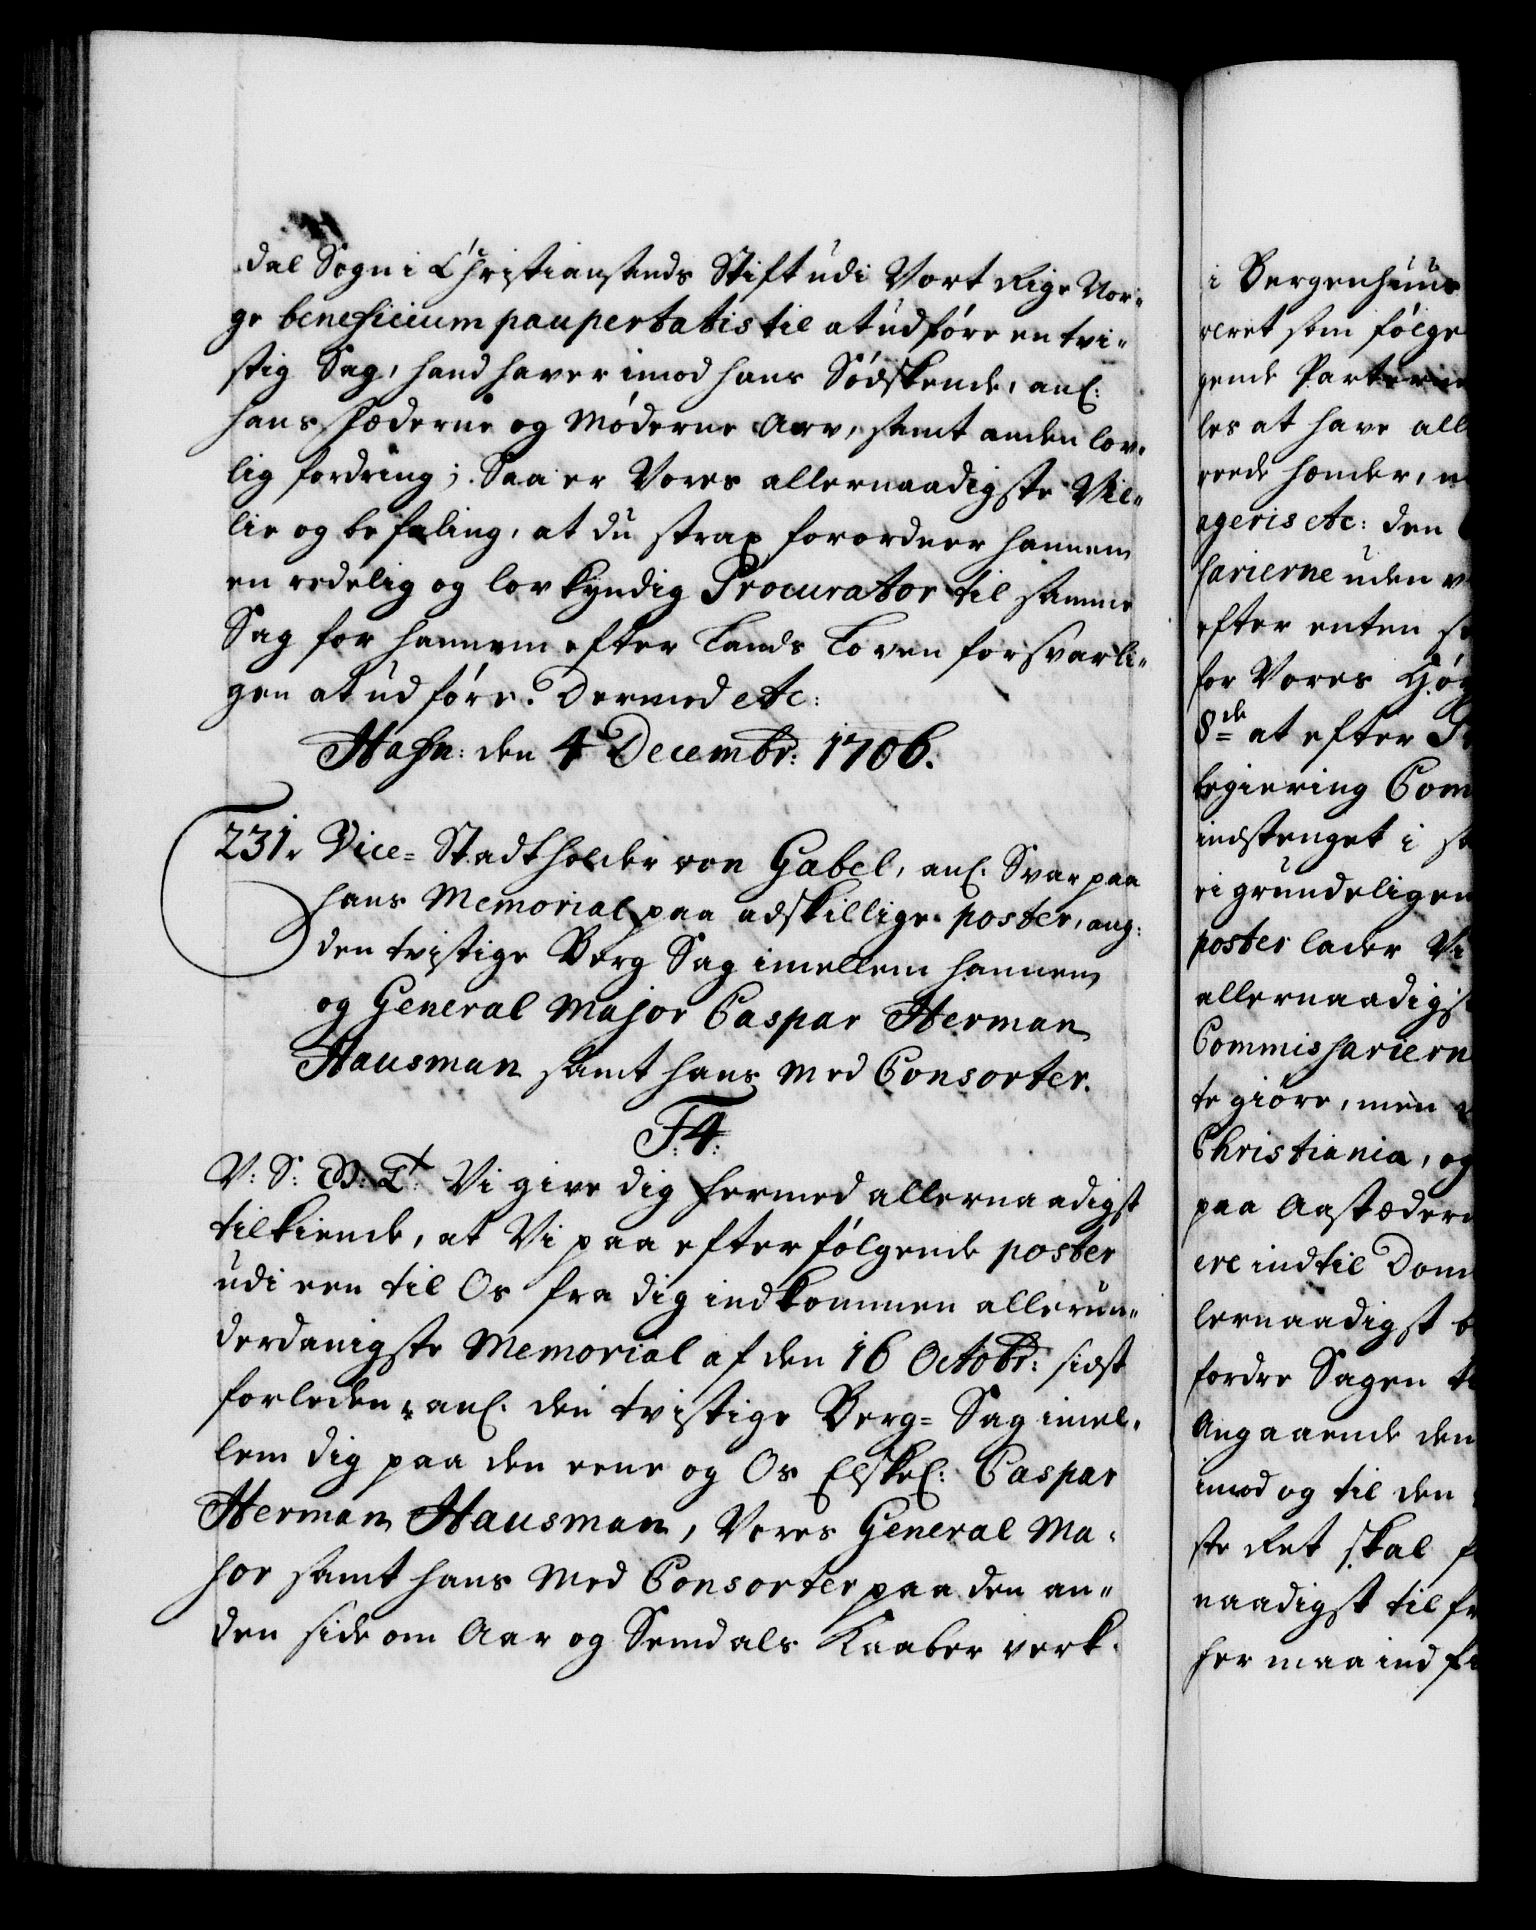 dal Sogn i Christiansands Stift udi Vort Rige Nor-
ge beneficium paupertatis til at udføre en tvi-
stig Sag, hand haver imod hans Sødskende, anl:
hans Fæderne og Møderne Arv, samt anden lov-
lig fordring; Saa er Vores allernaadigste Vil-
lie og befaling, at du strax forordner hannem
en redelig og lovkyndig Procurator til samme
Sag for hannem efter Lands Loven forsvarli-
gen at udføre. Dermed etc:
Hafn: den 4 Decembr: 1706.
231. Vice-Stadtholder von Gabel, anl. Svar paa
hans Memorial paa adskillige poster, ang:
den tvistige Berg Sag imellem hannem
og General Major Caspar Herman
Hausman samt hans Med Consorter.
F:4:
V: S: G: T: Vi give dig hermed allernaadigst
tilkiende, at Vi paa efterfølgende poster
udi een til Os fra dig indkommen allerun-
derdanigste Memorial af den 16 Octobr: sidst
forleden, anl. den tvistige Berg-Sag imel-
lem dig paa den eene og Os Elskel: Caspar
Herman Hausman, Vores General Ma-
jor samt hans Med Consorter paa den an-
den side om Aar og Semdals Kaaber verk.
i Bergenhuus
været som følge
gende Parterne
les at have all
rede hænder,
ageris etc: den
sarierne uden
efter enten
for Vores Høy
8de at efter
legiering Com
indstenget i
ri grundeligen
poster lader Vi
allernaadigst
Commissariern
te giøre, men
Christiania, og
paa Aastæderne
ere indtil Dom
lernaadigst
fordre Sagen
Angaaende den
imod og til den
ste Ret skal
naadigst til
her maa ind